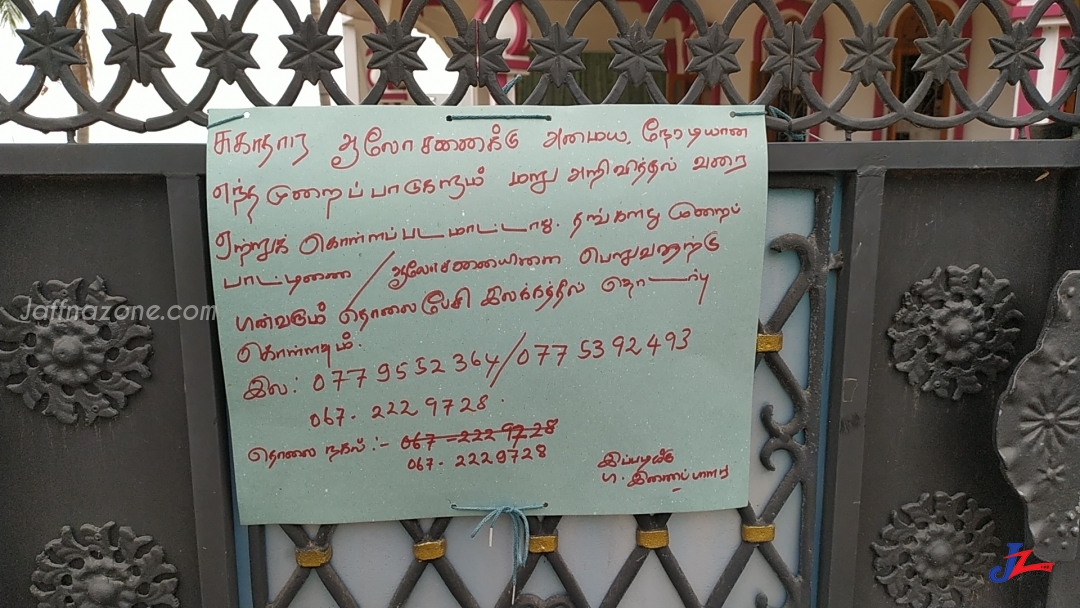 சுகாதார ஆலோசணைக்கு அமைய, நேரடியான
எந்த முறைப்பாடுகளும் மறு அறிவித்தல் வரை
ஏற்றுக் கொள்ளப்படமாட்டாது. தங்களது முறைப்
பாட்டினை / ஆலோசணையினை பெறுவதற்கு
பின்வரும் தொலைபேசி இலக்கத்தில் தொடர்பு
கொள்ளவும்.
இல: 077 9552 364/077 5392 493
067- 222 9728.
தொலை நகல் :- 067-222 9728
067- 2229728
இப்படிக்கு
Jaffnazone.com
JZ